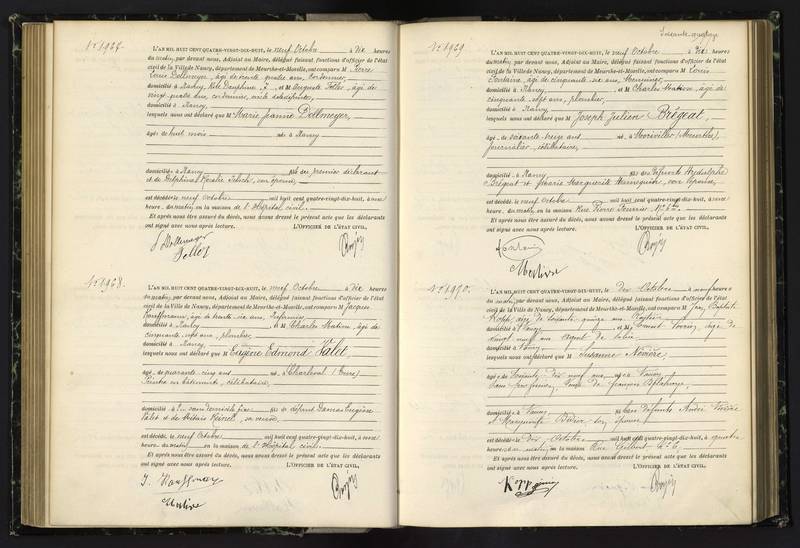 N° 1967.
L'AN MIL HUIT CENT QUATRE-VINGT-DIX-HUIT, le neuf Octobre à dix heures
du matin, par devant nous, Adjoint au Maire, délégué faisant fonctions d'officier de l'état
civil de la Ville de Nancy, département de Meurthe-et-Moselle, ont comparu M Pierre
Louis Dollmeyer, âgé de trente quatre ans, cordonnier,
domicilié à Nancy, et M Auguste âgé de
vingt quatre ans, cordonnier,
domicilié à Nancy
lesquels nous ont déclaré que M Marie Jeanne Dollmeyer,
âgée de huit mois née à Nancy
domiciliée à Nancy fille des premier déclarant
et de Delphine Rosalie son épouse,
est décédée le neuf Octobre mil huit cent quatre-vingt-dix-huit, à
heure du matin, en la maison de l'Hôpital civil.
Et après nous être assuré du décès, nous avons dressé le présent acte que les déclarants
ont signé avec nous après lecture. L'OFFICIER DE L'ÉTAT CIVIL,
Dollmeyer
N° 1968.
L'AN MIL HUIT CENT QUATRE-VINGT-DIX-HUIT, le neuf Octobre à dix heures
du matin, par devant nous, Adjoint au Maire, délégué faisant fonctions d'officier de l'état
civil de la Ville de Nancy, département de Meurthe-et-Moselle, ont comparu M Jacques
âgé de trente six ans,
domicilié à Nancy et M Charles âgé de
cinquante sept ans, plombier,
domicilié à Nancy
lesquels nous ont déclaré que M Eugène Edmond Valet,
âgé de quarante cinq ans né à Charleval (Eure)
Peintre en bâtiments, célibataire,
domicilié à sans domicile fixe fils de Eugène
Valet et de
est décédé le neuf Octobre mil huit cent quatre-vingt-dix-huit, à
heure du matin en la maison de l'Hôpital civil
Et après nous être assuré du décès, nous avons dressé le présent acte que les déclarants
ont signé avec nous après lecture. L'OFFICIER DE L'ÉTAT CIVIL,
N° 1969
L'AN MIL HUIT CENT QUATRE-VINGT-DIX-HUIT, le neuf Octobre à dix heures
du matin, par devant nous, Adjoint au Maire, délégué faisant fonctions d'officier de l'état
civil de la Ville de Nancy, département de Meurthe-et-Moselle, ont comparu M Louis
Fontaine, âgé de cinquante six ans,
domicilié à Nancy et M Charles âgé de
cinquante sept ans, plombier,
domicilié à Nancy
lesquels nous ont déclaré que M Joseph Julien Brégeat,
âgé de soixante treize ans né à Moriviller (Meurthe),
journalier, célibataire,
domicilié à Nancy fils des défunts Hydulphe
Brégeat et Marie Marguerite son épouse,
est décédé le neuf Octobre mil huit cent quatre-vingt-dix-huit, à
heure du matin, en la maison Rue Pierre Fourier,
Et après nous être assuré du décès, nous avons dressé le présent acte que les déclarants
ont signé avec nous après lecture. L'OFFICIER DE L'ÉTAT CIVIL,
N° 1970.
L'AN MIL HUIT CENT QUATRE-VINGT-DIX-HUIT, le dix Octobre à neuf heures
du matin, par devant nous, Adjoint au Maire, délégué faisant fonctions d'officier de l'état
civil de la Ville de Nancy, département de Meurthe-et-Moselle, ont comparu M Jean Baptiste
Kopp, âgé de soixante quinze ans
domicilié à Nancy et M Ernest âgé de
vingt neuf ans agent de police
domicilié à Nancy
lesquels nous ont déclaré que M Susanne Nivière
âgée de soixante dix neuf ans née à Nancy
sans profession, Veuve de François
domiciliée à Nancy fille des défunts André Nivière
et Marguerite son épouse
est décédée le dix Octobre mil huit cent quatre-vingt-dix-huit, à quatre
heures du matin, en la maison Rue Gilbert N° 6.
Et après nous être assuré du décès, nous avons dressé le présent acte que les déclarants
ont signé avec nous après lecture. L'OFFICIER DE L'ÉTAT CIVIL,
Kopp